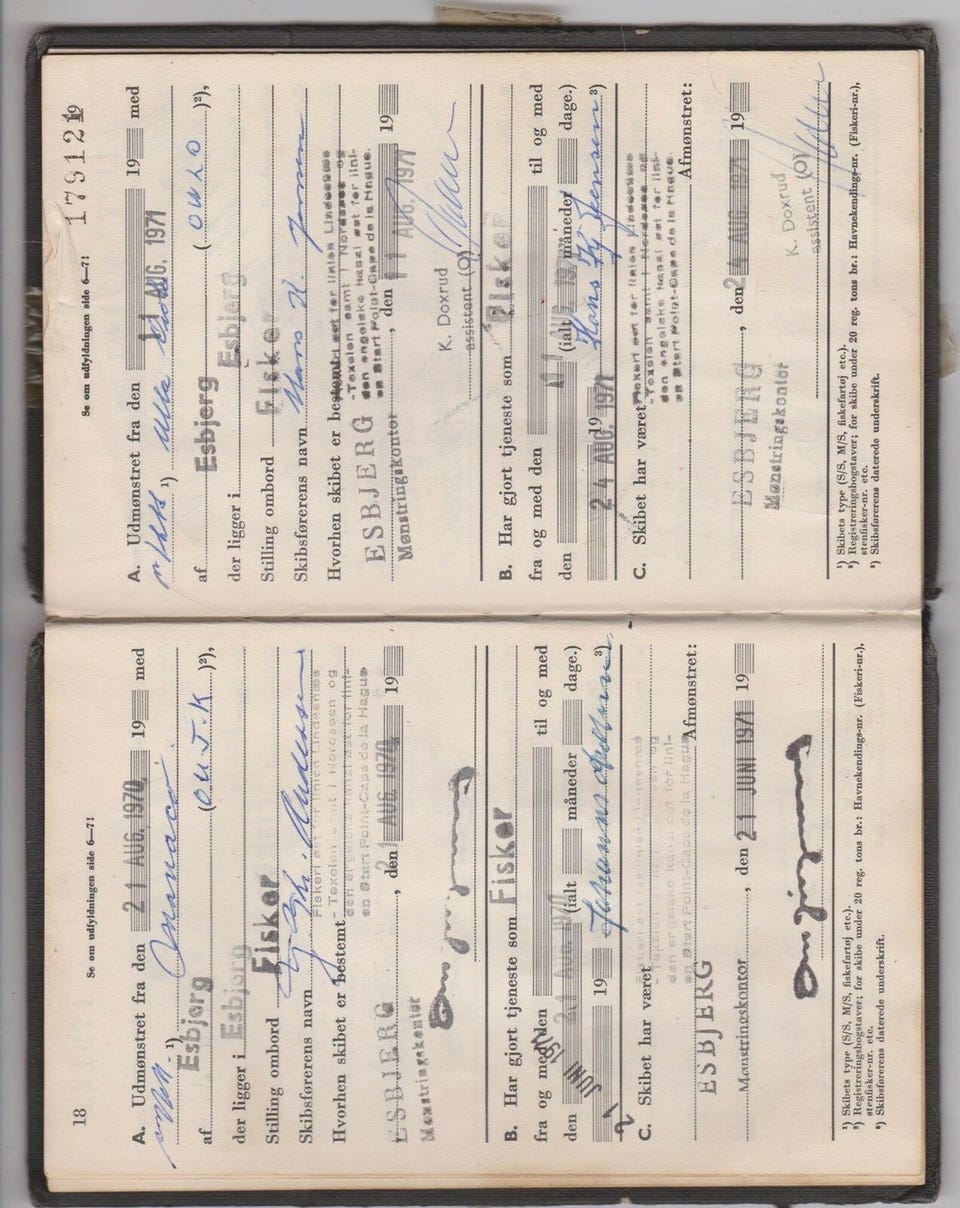 18
Se om udfyldningen side 6—7!
A. Udmønstret fra den 21 AUG. 1970 19 med
1) Monaco
af Esbjerg (OUJK )2),
der ligger i Esbjerg
Stilling ombord Fisker
Skibsførerens navn Andersen
Fiskeri øst for linien Lindesnæs
Hvorhen skibet er bestemt -Texelen samt i Nordsøen og
den engelske kanal øst for lini-
en Start Point-Cape de la Hague
ESBJERG , den 21 AUG. 1970 19
Mønstringskontor
B. Har gjort tjeneste som Fisker
fra og med den 21 AUG. 1970 til og med
den 21 JUNI 1971 19 (ialt måneder dage.)
3)
C. Skibet har været
-Texelen samt i Nordsøen og
den engelske kanal øst for lini-
en Start Point-Cape de la Hague
Afmønstret:
ESBJERG
Mønstringskontor , den 21 JUNI 1971 19
1) Skibets type (S/S, M/S, fiskefartøj etc.).
2) Registreringsbogstaver; for skibe under 20 reg. tons br.: Havnekendings-nr. (Fiskeri-nr.),
stenfisker-nr. etc.
3) Skibsførerens daterede underskrift.
179121 19
Se om udfyldningen side 6—7!
A. Udmønstret fra den 11 AUG. 1971 19 med
1) Ulla
af Esbjerg ( OWLO )2),
der ligger i Esbjerg
Stilling ombord Fisker
Skibsførerens navn Hans K. Jensen
Hvorhen skibet er bestemt Fiskeri øst for linien Lindesnæs
-Texelen samt i Nordsøen og
den engelske kanal øst for lini-
en Start Point-Cape de la Hague.
ESBJERG , den 11 AUG. 1971 19
Mønstringskontor
K. Doxrud
assistent (O)
B. Har gjort tjeneste som Fisker
fra og med den 11 AUG. 1971 til og med
den 24 AUG. 1971 19 (ialt måneder dage.)
Hans Kr Jensen 3)
C. Skibet har været Fiskeri øst for linien Lindesnæs
-Texelen samt i Nordsøen og
den engelske kanal øst for lini-
en Start Point-Cape de la Hague.
Afmønstret:
ESBJERG , den 24 AUG. 1971 19
Mønstringskontor
K. Doxrud
assistent (O)
1) Skibets type (S/S, M/S, fiskefartøj etc.).
2) Registreringsbogstaver; for skibe under 20 reg. tons br.: Havnekendings-nr. (Fiskeri-nr.),
stenfisker-nr. etc.
3) Skibsførerens daterede underskrift.